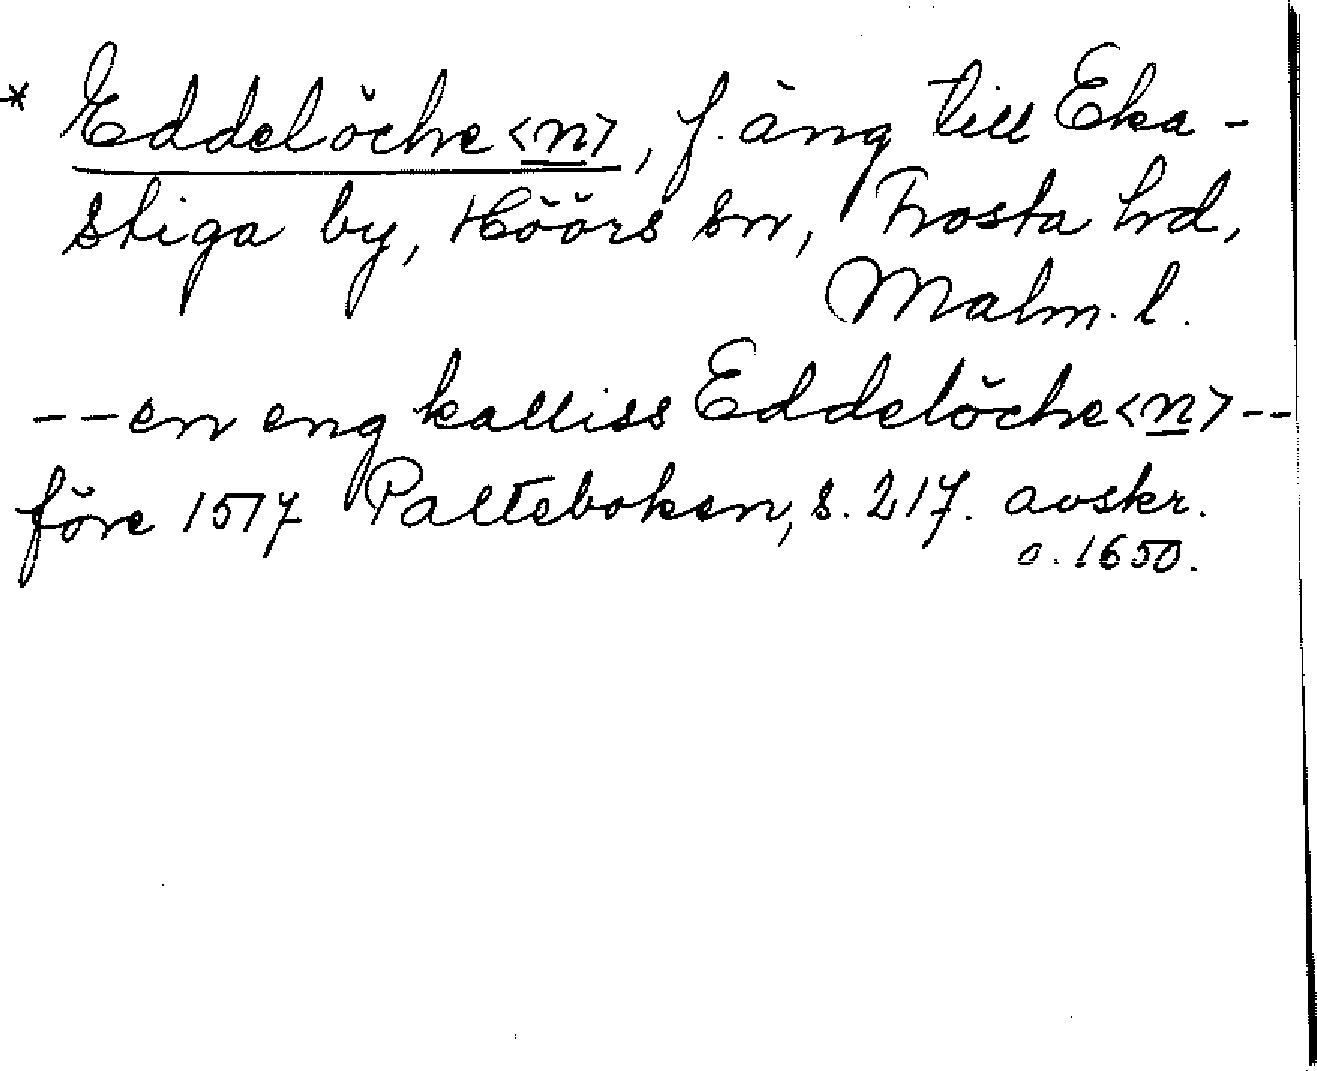 * Eddelöche<n>, f. äng till Eka-
stiga by, Höörs sn, Frosta hd,
Malm. l.
--en eng kalliss Eddelöche<n>--
före 1517 Palteboken, s. 217. avskr.
o. 1650.